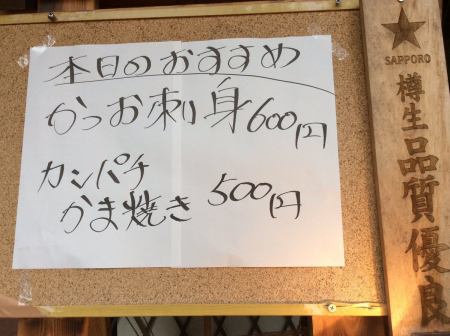 本日のおすすめ
かつお刺身600円
カンパチ
かま焼き 500円
SAPPORO
樽生品質優良